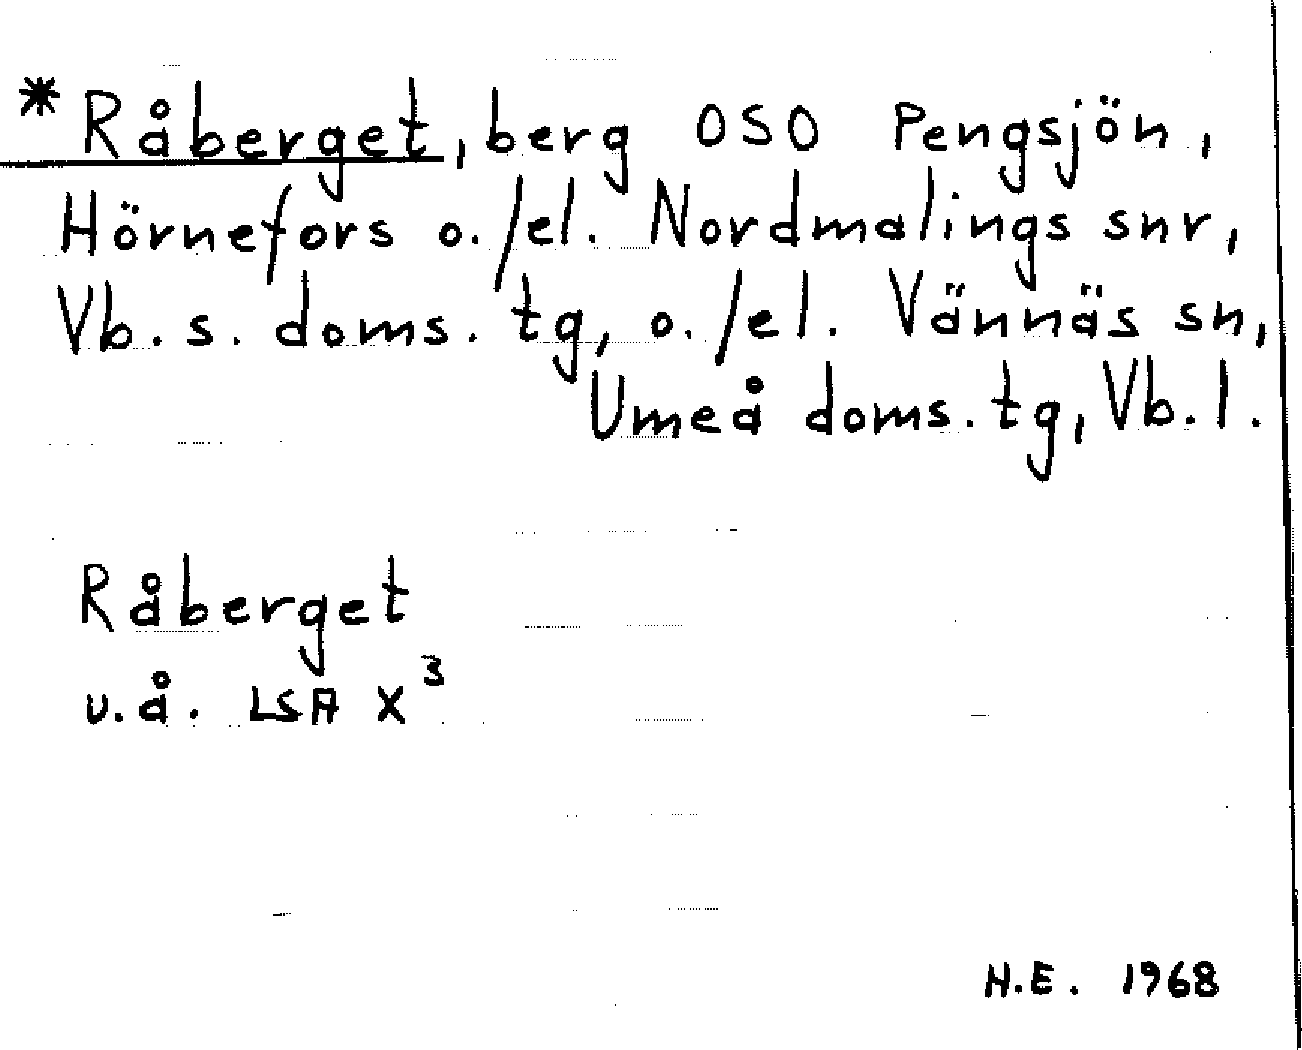 * Råberget, berg OSO Pengsjön,
Hörnefors o./el. Nordmalings snr,
Vb. s. doms. tg, o./el. Vännäs sn,
Umeå doms. tg, Vb. l.
Råberget
u.å. LSA X³
N.E. 1968